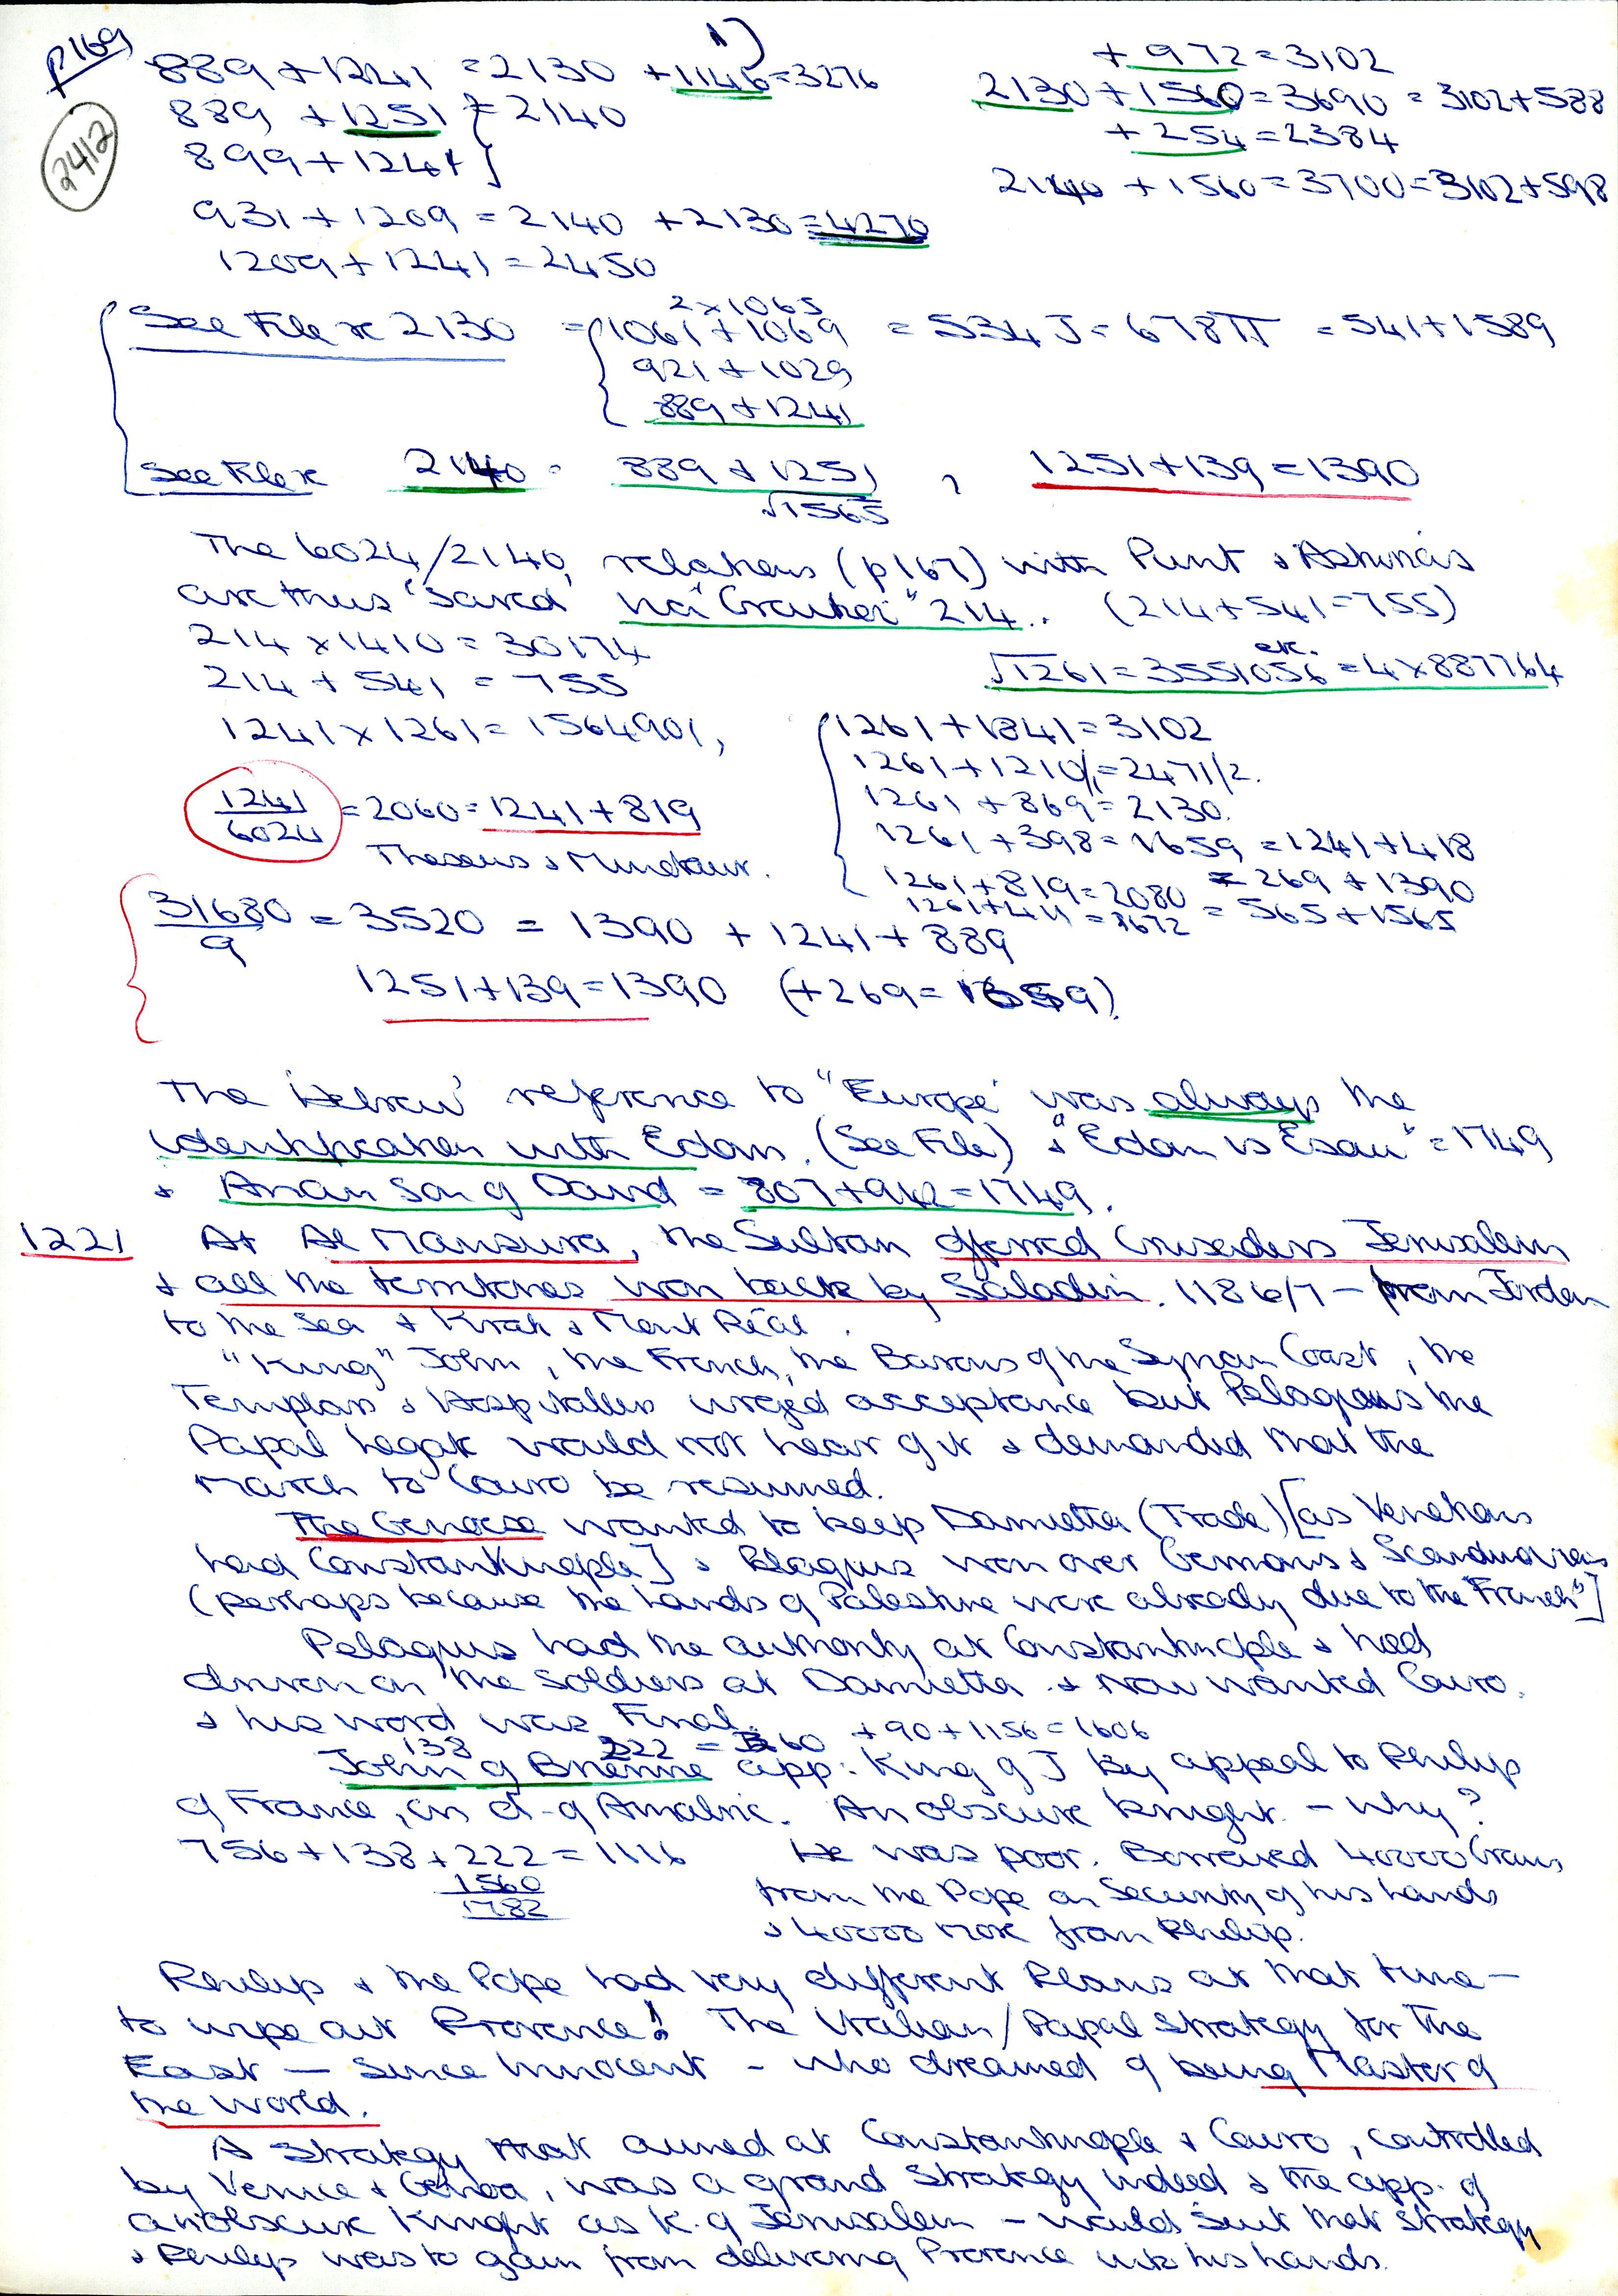 p169
2412
1)
889 + 1241 = 2130 + 1146 = 3276
889 + 1251 } = 2140
899 + 1241 }
931 + 1209 = 2140 + 2130 = 4270
1209 + 1241 = 2450
+ 972 = 3102
2130 + 1560 = 3690 = 3102 + 588
+ 254 = 2384
2140 + 1560 = 3700 = 3102 + 598
2 x 1065
See File x 2130 = 1061 + 1069 = 534 J = 678 π = 541 + 1589
921 + 1029
889 + 1241
See File x 2140 = 889 + 1251, 1251 + 139 = 1390
√1565
The 6024/2140, relations (p167) with Punt &
are thus 'saved' 214.. (214 + 541 = 755)
214 x 1410 = 30174
etc.
214 + 541 = 755
√1261 = 3551056 = 4 x 887764
1241 x 1261 = 1564901,
1261 + 1841 = 3102
1261 + 1210/1 = 2471/2.
1261 + 869 = 2130.
1261 + 398 = 1659 = 1241 + 418
1261 + 819 = 2080 = 269 + 1390
1261 + 411 = 1672 = 565 + 1565
1241/6024 = 2060 = 1241 + 819
Theseus & Minotaur.
31680/9 = 3520 = 1390 + 1241 + 889
1251 + 139 = 1390 (+ 269 = 1659).
The 'Hebrew' reference to "Europe' was always the
identification with Edom. (See File) & "Edom is Esau" = 1749
& Anan Son of David = 807 + 942 = 1749.
1221 At Al Mansura, the Sultan offered Crusaders Jerusalem
& all the territories won back by Saladin. 1186/7 - from Jordan
to the Sea & Krak & Mont Réal.
"King" John, the French, the Barons of the Syrian Coast, the
Templars & Hospitallers urged acceptance but Pelagius the
Papal Legate would not hear of it & demanded that the
March to Cairo be resumed.
The Genoese wanted to keep Damietta (Trade) [as Venetians
had Constantinople] & Pelagius won over Germans & Scandinavians
(perhaps because the lands of Palestine were already due to the "French"]
Pelagius had the authority at Constantinople & had
driven on the soldiers at Damietta & Now wanted Cairo.
& his word was Final.
138 222 = 360 + 90 + 1156 = 1606
John of Brienne app: King of J by appeal to Philip
of France, on d- of Amalric. An obscure knight - Why?
756 + 138 + 222 = 1116
1560
1782
He was poor. Borrowed 40000 Crowns
from the Pope on Security of his lands
& 40000 more from Philip.
Philip & the Pope had very different Plans at that time -
to wipe out Provence! The Italian/Papal strategy for the
East - Since Innocent - who dreamed of being Master of
the World.
A Strategy that aimed at Constantinople & Cairo, controlled
by Venice & Genoa, was a grand Strategy indeed & the app. of
an obscure Knight as K. of Jerusalem - would suit that strategy
& Philip was to gain from delivering Provence into his hands.